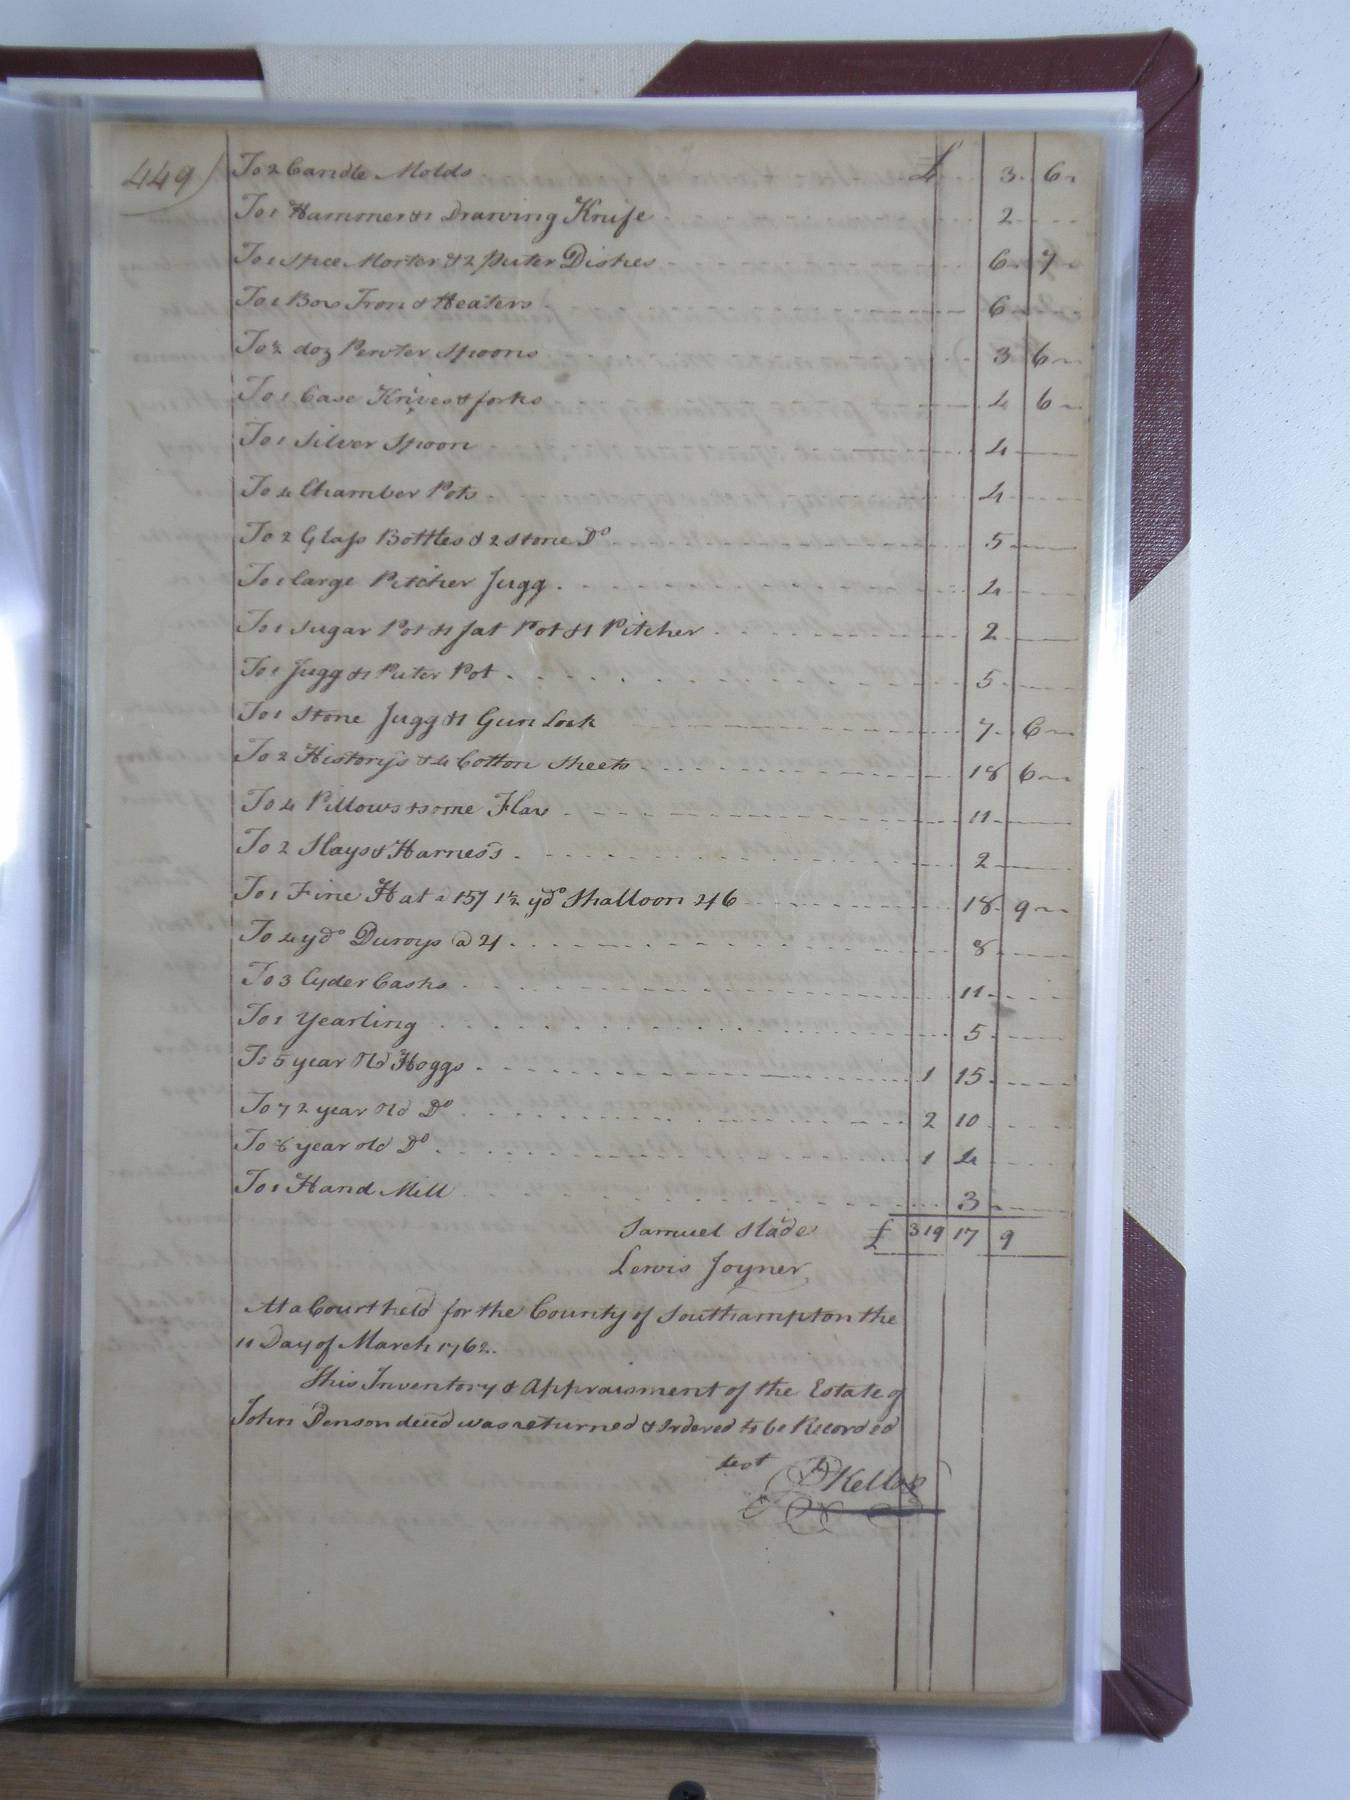 449) To 2 Candle Molds £ 3 6
To 1 Hammer & 1 Drawing Knife 2
To 1 Spice Morter & 2 Puter Dishes 6 7
To 1 Box Iron & Heaters 6
To ½ doz Pewter Spoons 3 6
To 1 Case Knives & forks 4 6
To 1 Silver Spoon 4
To 4 Chamber Pots 4
To 2 Glass Bottles & 2 stone Do 5
To 1 large Pitcher Jugg 4
To 1 Sugar Pot & 1 fat Pot & 1 Pitcher 2
To 1 Jugg & 1 Puter Pot 5
To 1 Stone Jugg & 1 Gun Lock 7 6
To 2 History's & 4 Cotton Sheets 18 6
To 4 Pillows & some Flax 11
To 2 Slays & Harness 2
To 1 Fine Hat a 15/ 1½ yds Shalloon 2/6 18 9
To 4 yds Duroys @ 2/ 8
To 3 Cyder Casks 11
To 1 Yearling 5
To 5 year Old Hoggs 1 15
To 7 2 year Old Do 2 10
To 8 year old Do 1 4
To 1 Hand Mill 3
Samuel Slade £ 319 17 9
Lewis Joyner
At a Court held for the County of Southampton the
11 Day of March 1762.
This Inventory & Appraisment of the Estate of
John Denson deced was returned & Ordered to be Recorded
test
R Kello